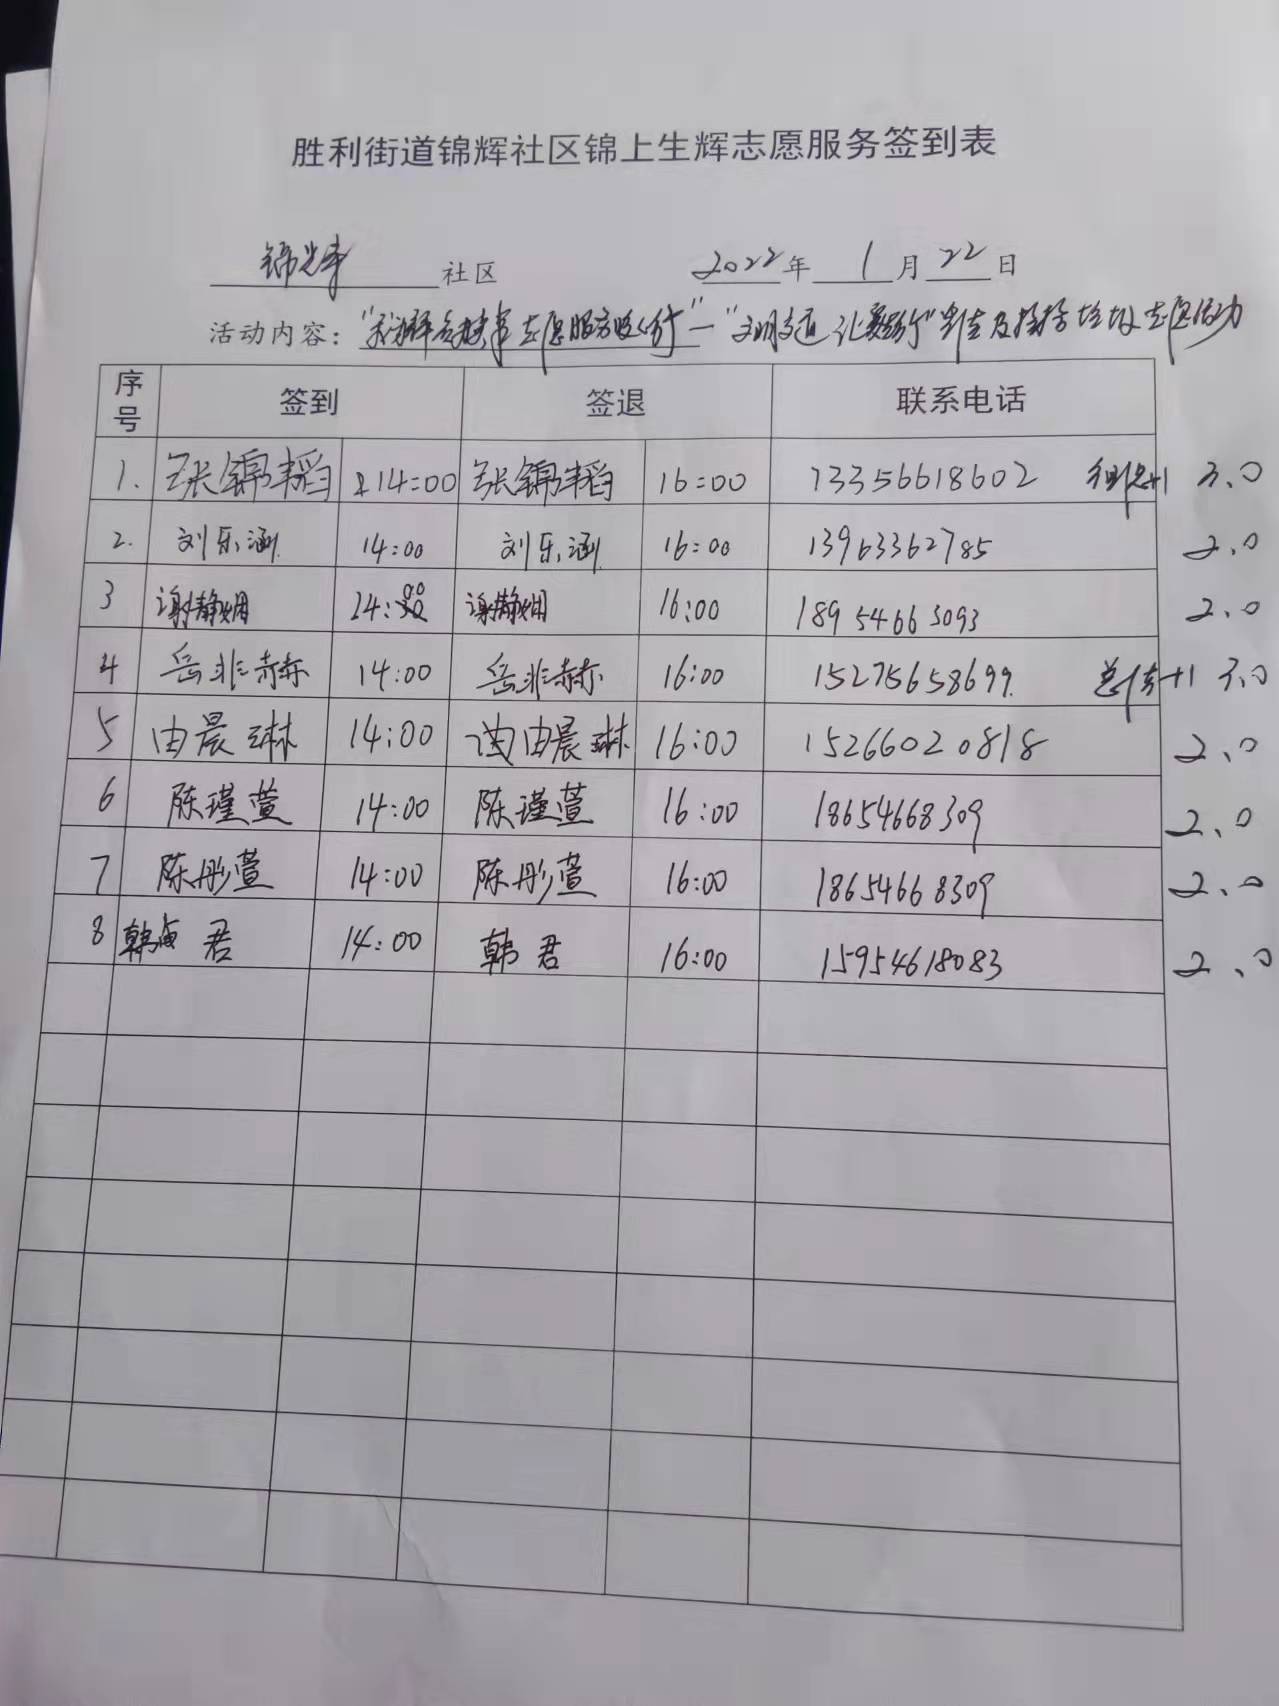 胜利街道锦辉社区锦上生辉志愿服务签到表
锦辉 社区 2022年 1月22日
活动内容：志愿服务 "文明交通 及捡拾垃圾志愿活动
序号 签到 签退 联系电话
1. 张锦韬 14:00 张锦韬 16:00 13356618602 组织+1 3.0
2. 刘乐涵 14:00 刘乐涵 16:00 13963362785 2.0
3 谢静娴 14:00 谢静娴 16:00 18954665093 2.0
4 岳非赫 14:00 岳非赫 16:00 15275658699. 总结+1 3.0
5 由晨琳 14:00 由晨琳 16:00 15266020818 2.0
6 陈瑾萱 14:00 陈瑾萱 16:00 18654668309 2.0
7 陈彤萱 14:00 陈彤萱 16:00 18654668309 2.0
8 韩君 14:00 韩君 16:00 15954618083 2.0